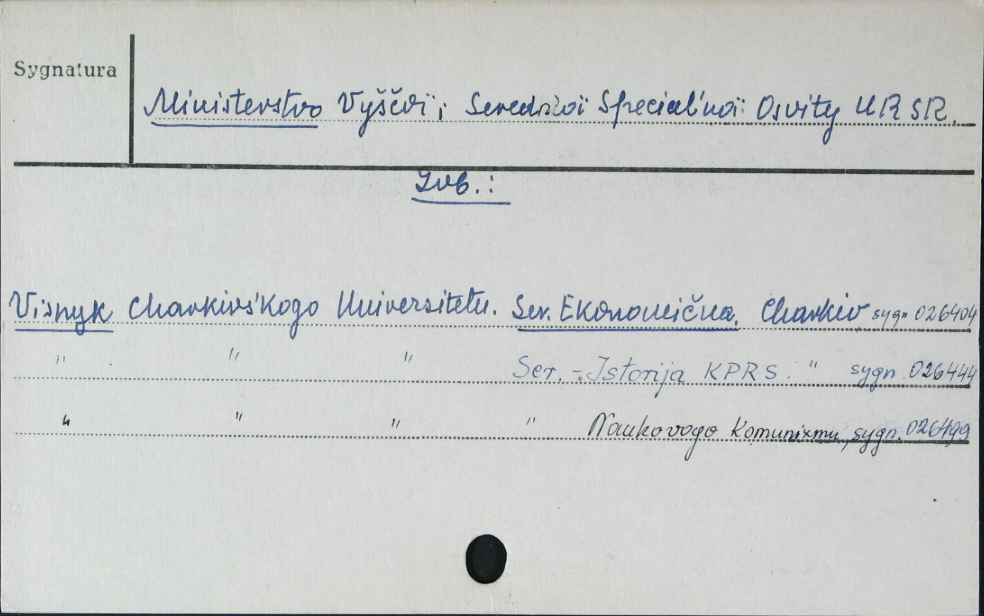 Sygnatura
Ministerstvo Vyščoï i Serednoï Special'noï Osvity URSR.
Zob.:
Visnyk Charkivs'kogo Universitetu. Ser. Ekonomična, Charkiv sygn 026404
" " " Ser. - Istorija KPRS. " sygn. 026444
" " " " Naukovogo Komunizmu, sygn. 026499